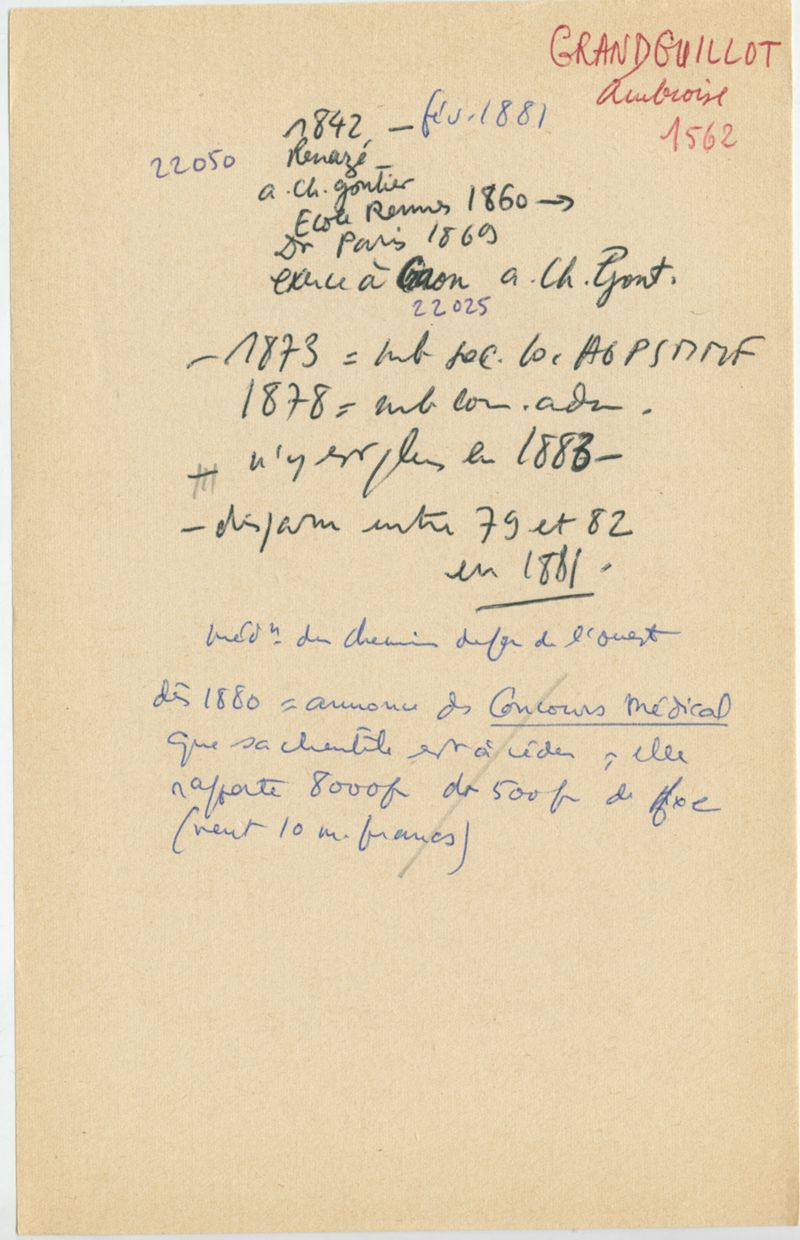 GRANDGUILLOT
Ambroise
1562
1842 – fév. 1881
22050 Renazé –
a. Ch. gontier
Ecole Rennes 1860 →
Dr Paris 1869
exerce à Craon a. Ch. Gont.
22025
– 1873 = mb soc. loc. AGPSMMF
1878 = mb com. adm.
– n'y est plus en 1883 –
– disparu entre 79 et 82
en 1881.
médn du chemin de fer de l'ouest
dès 1880 = annonce ds Concours Médical
que sa clientèle est à céder ; elle
rapporte 8000fr dt 500fr de fixe
(veut 10 m. francs)